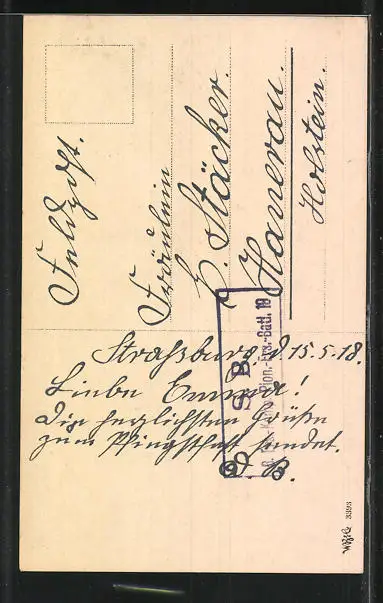 Feldpost.
Fräulein
E. Stäcker.
Hanerau.
Holstein.
Straßburg, d. 15.5.18.
Liebe Emma!
Die herzlichsten Grüße
zum Pfingstfest sendet.
B.
S B
Ers.-Batl. 10
W.B.i.G 3393